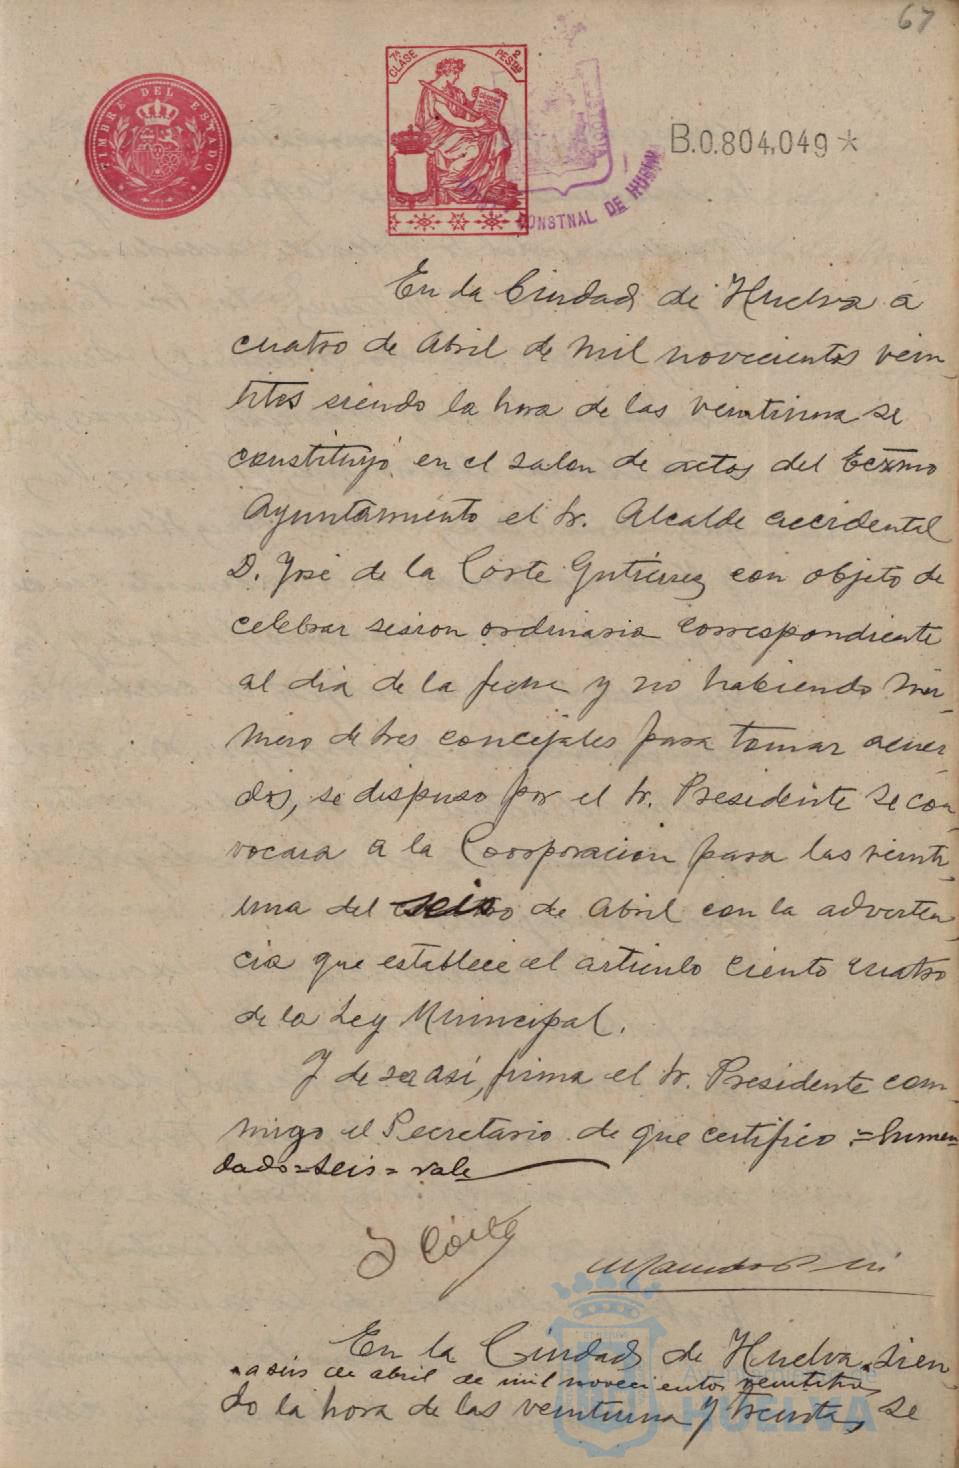 67
TIMBRE DEL ESTADO
7ª CLASE
2 PESTAS
B.0.804,049*
CONSTNAL DE HUELVA
En la Ciudad de Huelva a
cuatro de Abril de mil novecientos vein-
titres siendo la hora de las veintiuna se
constituyó en el salon de actos del Excmo
Ayuntamiento el Sr. Alcalde accidental
D. José de la Corte Gutiérrez con objeto de
celebrar sesion ordinaria correspondiente
al dia de la fecha y no habiendo nú-
mero de tres concejales para tomar acuer-
dos, se dispuso por el Sr. Presidente se con-
vocara a la Corporacion para las veinti-
una del seis de Abril con la adverten-
cia que establece el articulo ciento cuatro
de la Ley Municipal.
Y de ser así, firma el Sr. Presidente con-
migo el Secretario de que certifico = Enmen-
dado = seis = vale
J Corte
En la Ciudad de Huelva sien-
a seis de abril de mil novecientos veintitres
do la hora de las veintiuna y treinta, se
HUELVA